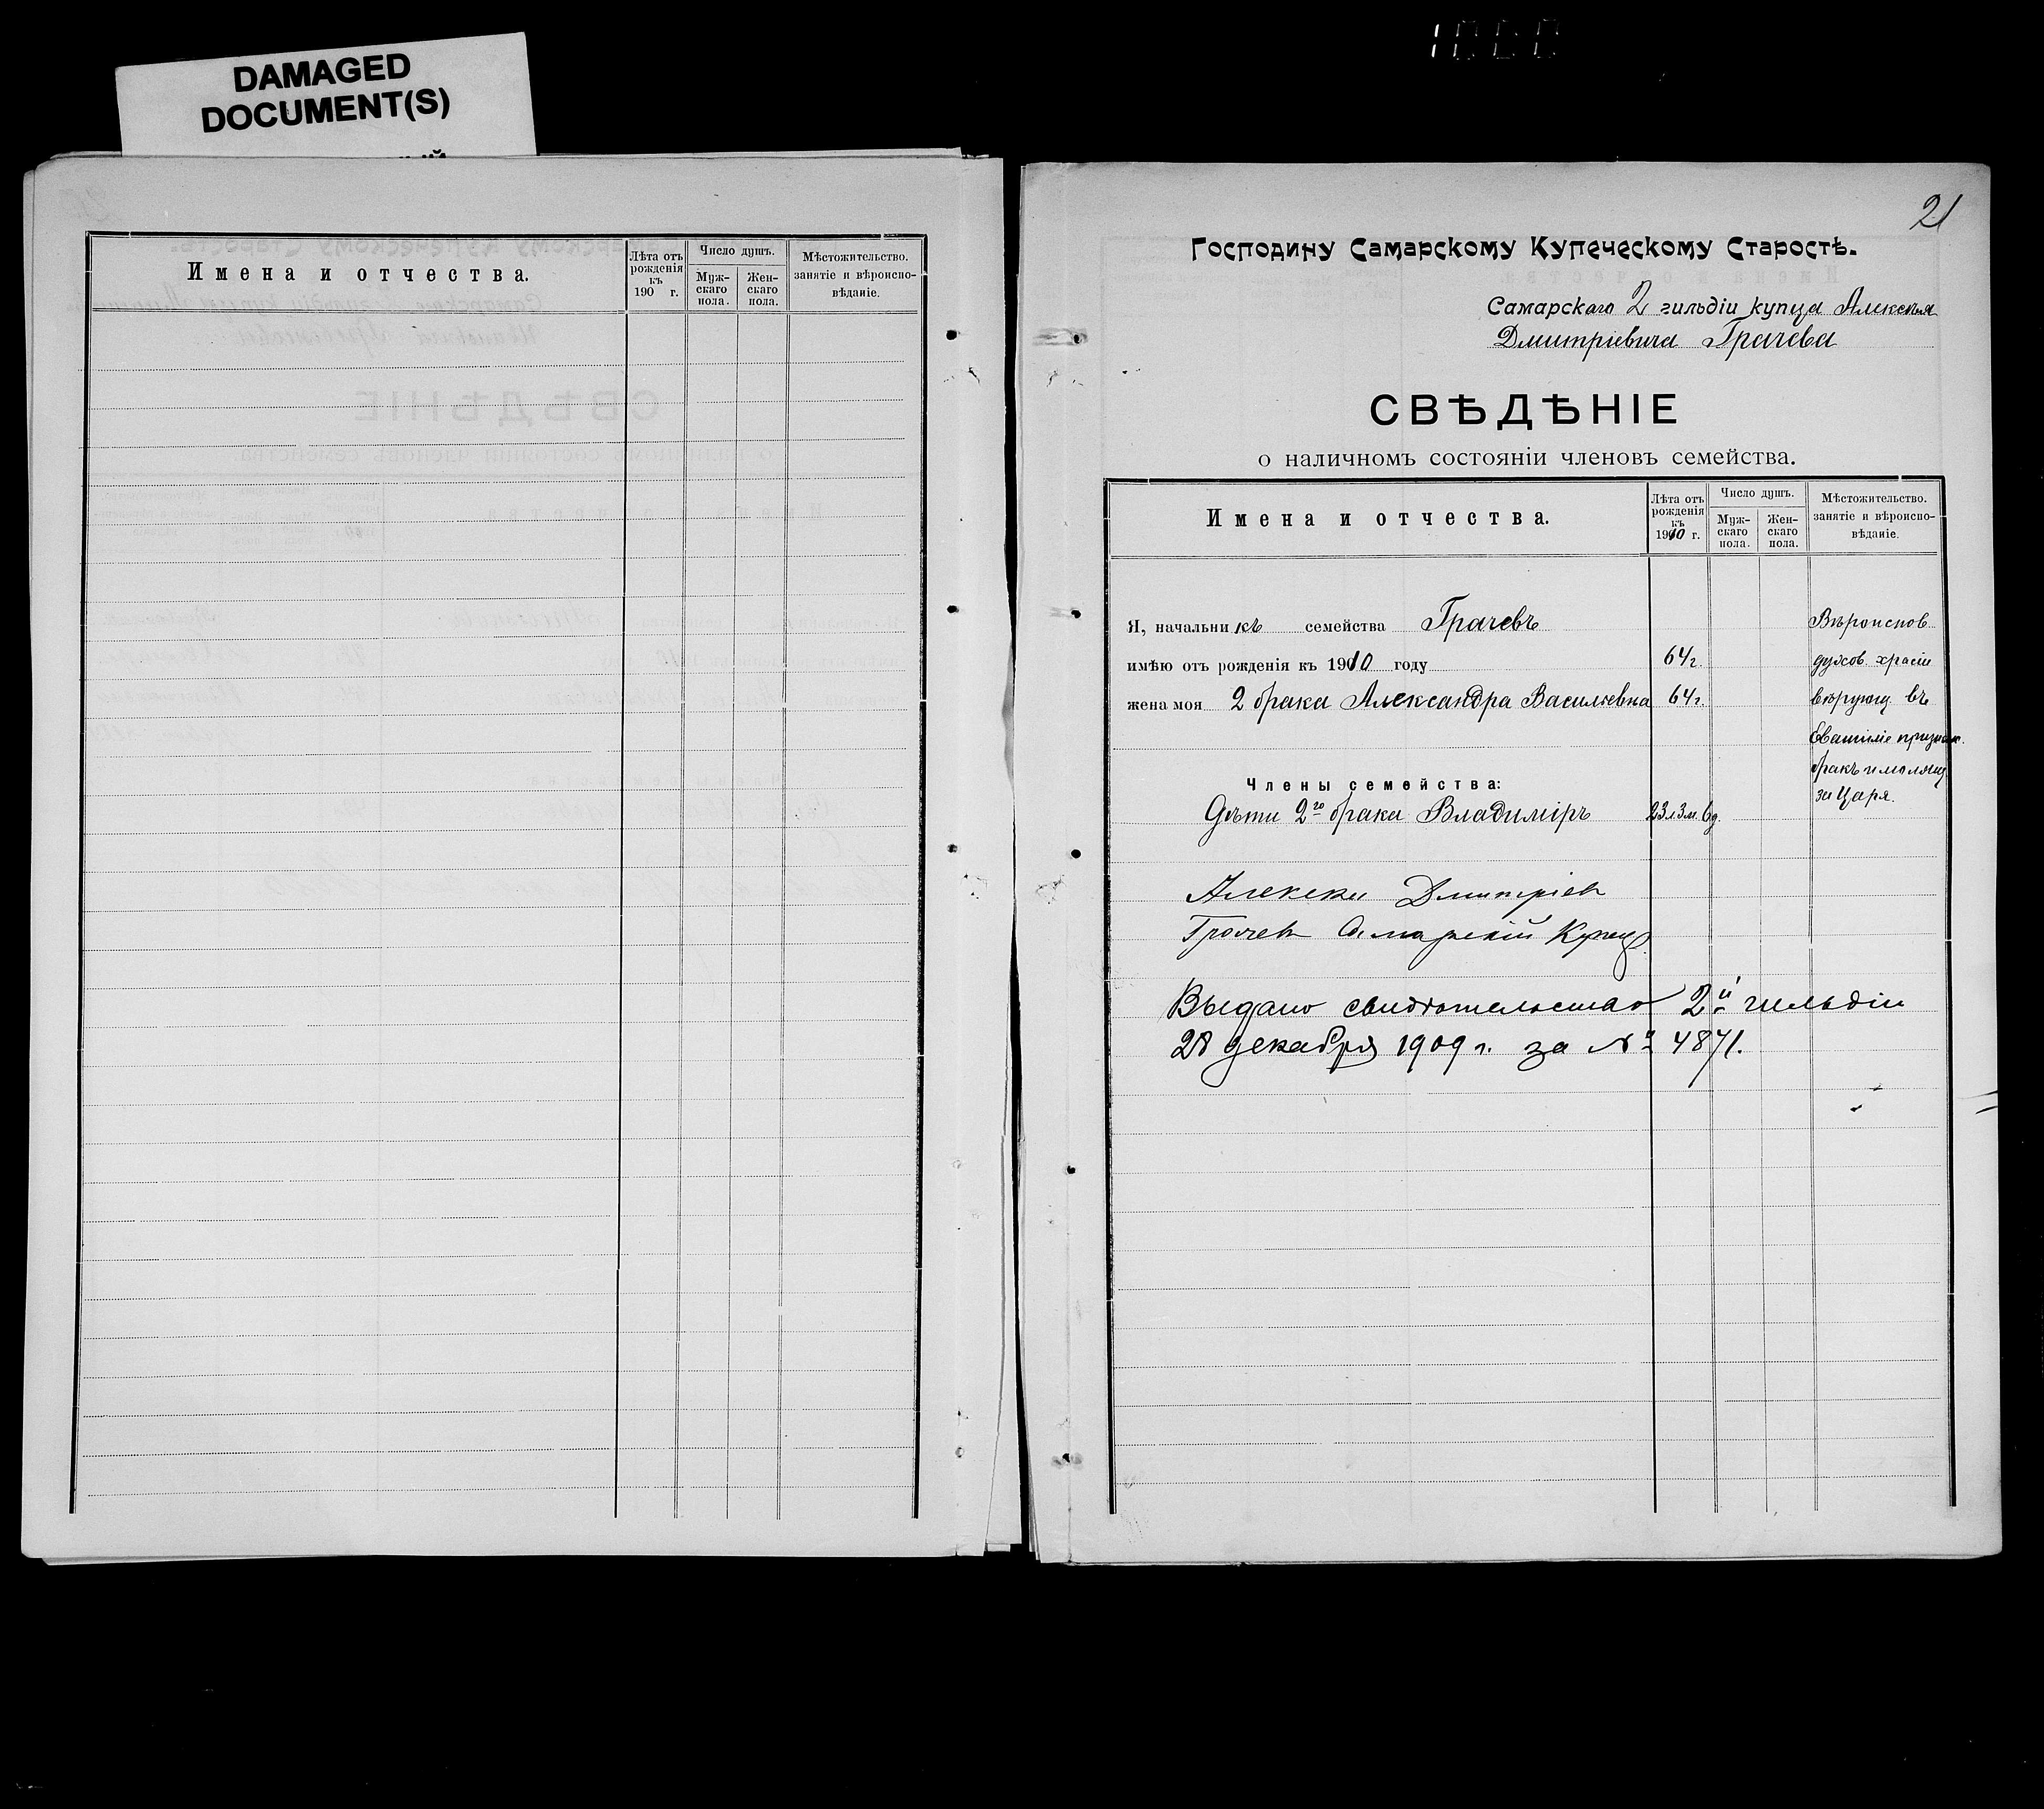 DAMAGED
DOCUMENT(S)
Имена и отчества.
Лѣта отъ
рожденія
къ
190 г.
Число душъ.
Муж-
скаго
пола.
Жен-
скаго
пола.
Мѣстожительство.
занятіе и вѣроиспо-
вѣданіе.
21
Господину Самарскому Купеческому Старостѣ.
Самарскаго 2 гильдіи купца Алексѣя
Дмитріевича Грачева
СВѢДѢНІЕ
о наличномъ состояніи членовъ семейства.
Имена и отчества.
Лѣта отъ
рожденія
къ
1910 г.
Число душъ.
Муж-
скаго
пола.
Жен-
скаго
пола.
Мѣстожительство.
занятіе и вѣроиспо-
вѣданіе.
Я, начальникъ семейства Грачевъ
Вѣроиспов
имѣю отъ рожденія къ 1910 году 64 г.
духов. храсті
жена моя 2 брака Александра Васильевна 64 г.
вѣрующ въ
Евангіліе признаю.
бракъ и молящ
за Царя.
Члены семейства:
Дѣти 2го брака Владиміръ 23 л 3 м. 6 д.
Алексеи Дмитріев
Грачев Самарскій Купец
Выдано свидѣтельство 2й гильдіи
28 декабря 1909 г. за № 4871.